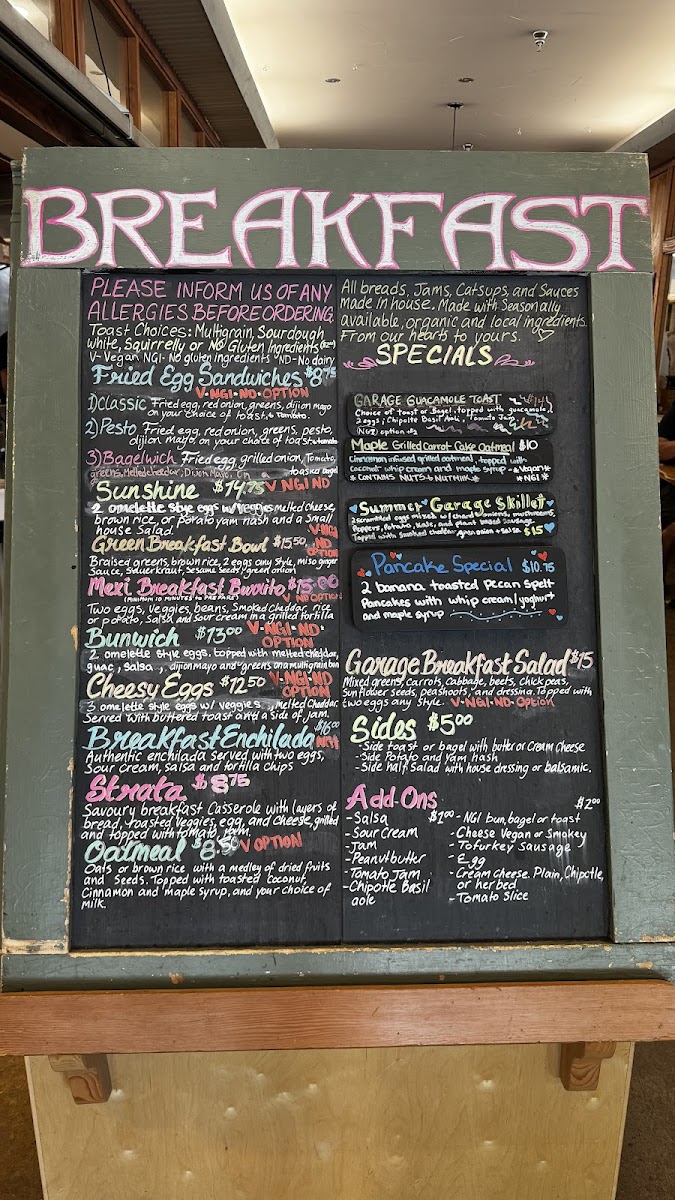 BREAKFAST
PLEASE INFORM US OF ANY
ALLERGIES BEFORE ORDERING.
Toast Choices: Multigrain, Sourdough
white, Squirrelly or No Gluten Ingredients
V-Vegan NGI- No gluten ingredients ND-No dairy
Fried Egg Sandwiches $8.75
V·NGI·ND·OPTION
1) Classic Fried egg, red onion, greens, dijon mayo
on your choice of toast. + tomato.
2) Pesto Fried egg, red onion, greens, pesto,
dijon mayo, on your choice of toast. + tomato
3) Bagelwich Fried egg, grilled onion, Tomato,
greens, Melted cheddar, Dijon Mayo, On a toasted bagel
Sunshine $14.75 V NGI ND
2 omelette style eggs w/ veggies, melted cheese,
brown rice, or potato yam hash and a small
house Salad. V·NGI
Green Breakfast Bowl $15.50 ND OPTION
Braised greens, brown rice, 2 eggs any style, miso ginger
Sauce, Sauerkraut, Sesame Seeds, green onion
Mexi Breakfast Burrito $15.00
(MINIMUM 10 MINUTES TO PREPARE) V·ND OPTION
Two eggs, veggies, beans, Smoked cheddar, rice
or potato, Salsa, and Sour cream in a grilled tortilla
Bunwich $13.00 V·NGI·ND·
OPTION
2 omelette style eggs, topped with melted cheddar,
guac, salsa, dijion mayo and greens on a multigrain bun
Cheesy Eggs $12.50 V·NGI·ND
OPTION
3 omelette style eggs w/ veggies, Melted Cheddar
Served with buttered toast and a side of jam.
Breakfast Enchilada $16.00 NGI
Authentic enchilada Served with two eggs,
Sour cream, salsa and tortilla chips
Strata $8.75
Savoury breakfast Casserole with layers of
bread, toasted veggies, egg, and cheese, grilled
and topped with tomato jam.
Oatmeal $8.50 V OPTION
Oats or brown rice with a medley of dried fruits
and Seeds. Topped with toasted coconut,
Cinnamon and maple syrup, and your choice of
milk.
All breads, Jams, Catsups, and Sauces
Made In house. Made with Seasonally
available, organic and local ingredients.
From our hearts to yours.
SPECIALS
GARAGE GUACAMOLE TOAST $14
Choice of toast or Bagel, topped with guacamole,
2 eggs, Chipotle Basil Aiole, Tomato Jam
(NGI) option +2
Maple Grilled Carrot Cake Oatmeal $10
Cinnamon infused grilled oatmeal, topped with
Coconut whip cream and maple syrup - *Vegan*
*CONTAINS NUTS + NUTMILK* *NGI*
Summer Garage Skillet
2 scrambled eggs mixed w/ chard + onions, mushrooms,
Peppers, Potato, Kale, and plant based Sausage.
Topped with Smoked cheddar, green onion + salsa $15
Pancake Special $10.75
2 banana toasted Pecan spelt
Pancakes with whip cream/yoghurt
and maple syrup
Garage Breakfast Salad $15
Mixed greens, carrots, cabbage, beets, chick peas,
Sunflower seeds, peashoots, and dressing. Topped with
two eggs any style. V·NGI·ND·Option
Sides $5.00
-Side toast or bagel with butter or Cream Cheese
-Side Potato and yam hash
-Side half Salad with house dressing or balsamic.
Add-Ons
$1.00
-Salsa
-Sour cream
-Jam
-Peanut butter
-Tomato Jam
-Chipotle Basil
aole
$2.00
-NGI bun, bagel or toast
-Cheese Vegan or Smokey
-Tofurkey Sausage
-Egg
-Cream cheese. Plain, Chipotle,
or herbed
-Tomato Slice